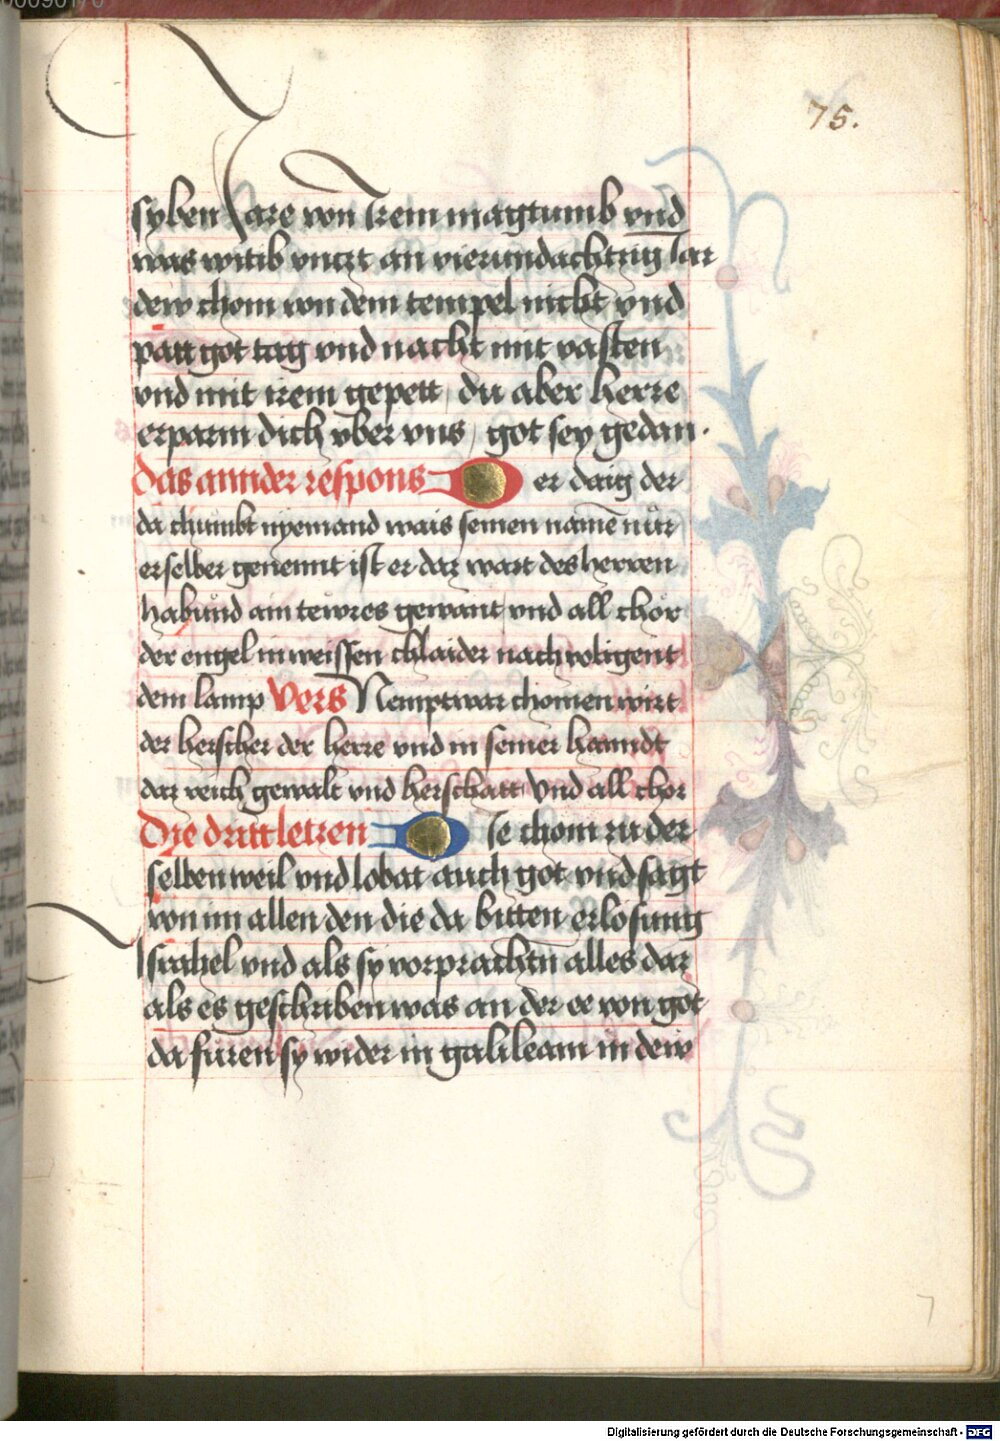 00090170
75.
syben Jare von Irem magtumb vnd
was witib vnczt an vierundachtzig Iar
dew chom von dem tempel nicht vnd
patt got tag vnd nacht mit vasten
vnd mit irem gepett du aber herre
erparm dich vber vns got sey gedan.
Das annder respons er daig der
da chumbt nyemand wais seinen namē nŭr
er selber genennt ist er daz wart des herren
habund ain tewres gewant vnd all chör
der engel in weissen chlaider nachvoligent
dem lamp Vers Nempt war chomen wirt
der herscher der herre vnd in seiner hanndt
daz reich gewalt vnd herschatt vnd all chor
Dye dritt letzen Ie chom zu der
selben weil vnd lobat auch got vnd sagt
von im allen den die da biten erlosung
Israhel vnd als sy vorprachtn alles daz
als es geschriben was an der ee von got
da furen sy wider in galileam in dew
7
Digitalisierung gefördert durch die Deutsche Forschungsgemeinschaft - DFG